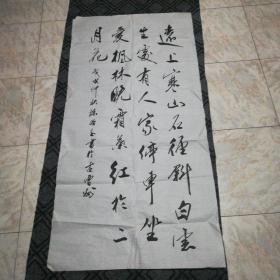 遠上寒山石徑斜白雲
生處有人家停車坐
愛楓林晚霜葉紅於二
月花 戊戌仲秋 書於古